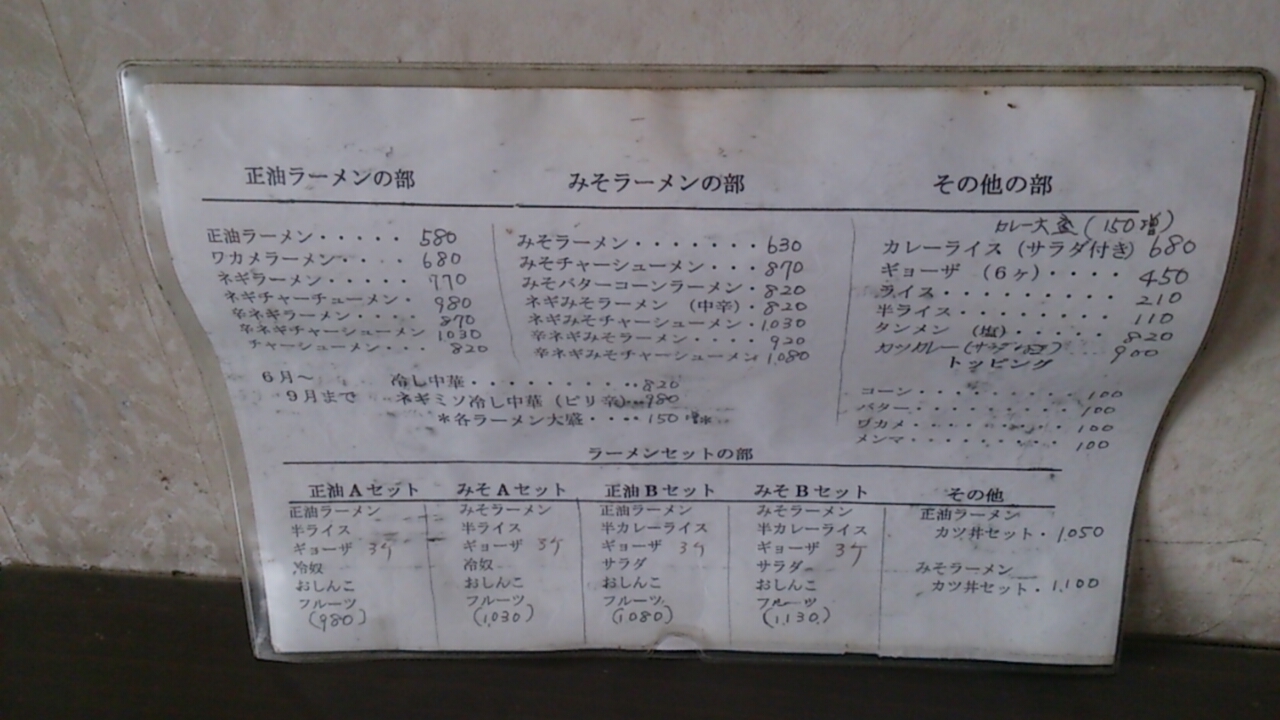 正油ラーメンの部
正油ラーメン・・・・・ 580
ワカメラーメン・・・・ 680
ネギラーメン・・・・・ 770
ネギチャーチューメン・ 980
辛ネギラーメン・・・・ 870
辛ネギチャーシューメン 1030
チャーシューメン・・・ 820
みそラーメンの部
みそラーメン・・・・・・・・630
みそチャーシューメン・・・870
みそバターコーンラーメン・820
ネギみそラーメン (中辛)・820
ネギみそチャーシューメン・1,030
辛ネギみそラーメン・・・・920
辛ネギみそチャーシューメン 1,080
6月〜 冷し中華・・・・・・・・・・・820
9月まで ネギミソ冷し中華(ピリ辛)…980
*各ラーメン大盛・・・・150増*
その他の部
カレー大盛(150増)
カレーライス(サラダ付き)680
ギョーザ (6ヶ)・・・・ 450
ライス・・・・・・・・・ 210
半ライス・・・・・・・・ 110
タンメン (塩)・・・・・ 820
カツカレー ・・・ 900
トッピング
コーン・・・・・・・・・ 100
バター・・・・・・・・・ 100
ワカメ・・・・・・・・・ 100
メンマ・・・・・・・・・ 100
ラーメンセットの部
正油Aセット
正油ラーメン
半ライス
ギョーザ 3ケ
冷奴
おしんこ
フルーツ
(980)
みそAセット
みそラーメン
半ライス
ギョーザ 3ケ
冷奴
おしんこ
フルーツ
(1,030)
正油Bセット
正油ラーメン
半カレーライス
ギョーザ 3ケ
サラダ
おしんこ
フルーツ
(1,080)
みそBセット
みそラーメン
半カレーライス
ギョーザ 3ケ
サラダ
おしんこ
フルーツ
(1,130)
その他
正油ラーメン
カツ丼セット・1,050
みそラーメン
カツ丼セット・1,100